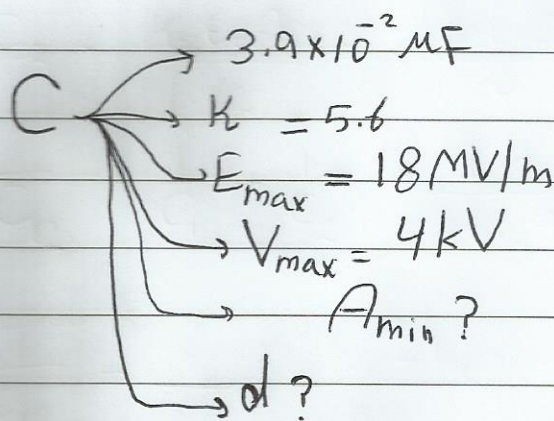 C
3.9×10⁻² MF
K = 5.6
Emax = 18 MV/m
Vmax = 4kV
Amin ?
d ?